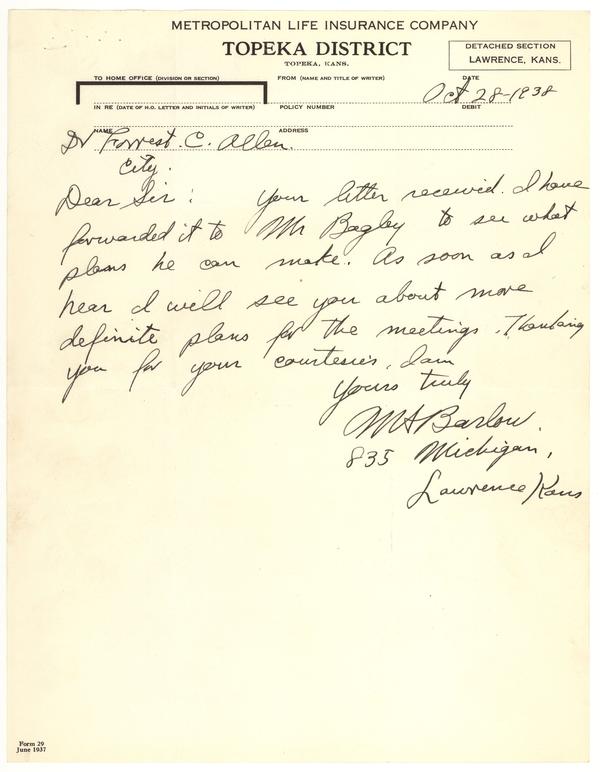 METROPOLITAN LIFE INSURANCE COMPANY
TOPEKA DISTRICT
TOPEKA, KANS.
DETACHED SECTION
LAWRENCE, KANS.
TO HOME OFFICE (DIVISION OR SECTION)
FROM (NAME AND TITLE OF WRITER)
DATE
Oct 28-1938
IN RE (DATE OF H.O. LETTER AND INITIALS OF WRITER)
POLICY NUMBER
DEBIT
NAME
ADDRESS
Dr Forrest. C. Allen.
City.
Dear Sir: Your letter received. I have
forwarded it to Mr Bagley to see what
plans he can make. As soon as I
hear I will see you about more
definite plans for the meetings. Thanking
you for your courtesies, I am
Yours truly
M H Barlow.
835 Michigan,
Lawrence Kans
Form 29
June 1937